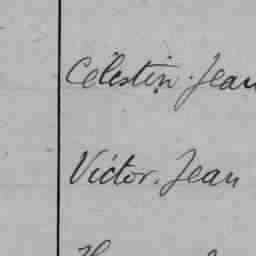 Célestin. Jean
Victor. Jean